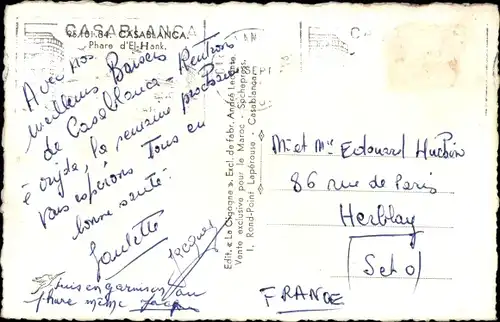 CASABLANCA
98.101.84. CASABLANCA.
Phare d'El-Hank.
Avec nos
meilleurs Baisers
de Casablanca. Rentrons
la semaine prochaine
Vous espérons tous en
bonne santé.
Jacques
Suis en garnison au
phare même Jacques
Edit. « La Cigogne ». Excl. de fabr. André Leconte.
Vente exclusive pour le Maroc - Sochepress.
1, Rond-Point Lapérouse - Casablanca.
SEPT
Mr et Me Edouard Hubin
86 rue de Paris
Herblay
(S et O)
FRANCE